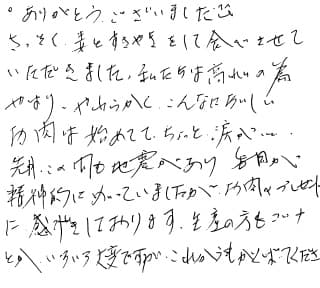 。ありがとうございました
さっそく、妻とすきやきをして食べさせて
いただきました。私たちは高れいの為
やはり、やわらかく、こんなにおいしい
肉は始めてで、ちょっと涙が…
先月、この町も地震があり 毎日が
精神的にまいっていましたが、肉のプレゼント
に感謝をしております。生産の方もコロナ
とか、いろいろ大変ですが、これからもがんばってくださ